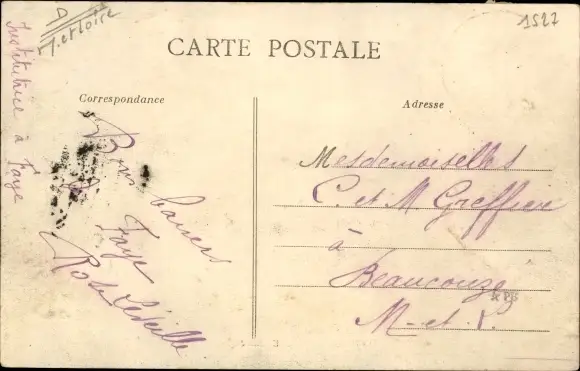 D
M. et Loire
1527
CARTE POSTALE
Correspondance
Adresse
Institutrice à Faye
Bons baisers
Faye
Rose Léveillé
Mesdemoiselles
C. et M. Greffier
à
Beaucouzé
M-et-L.
3